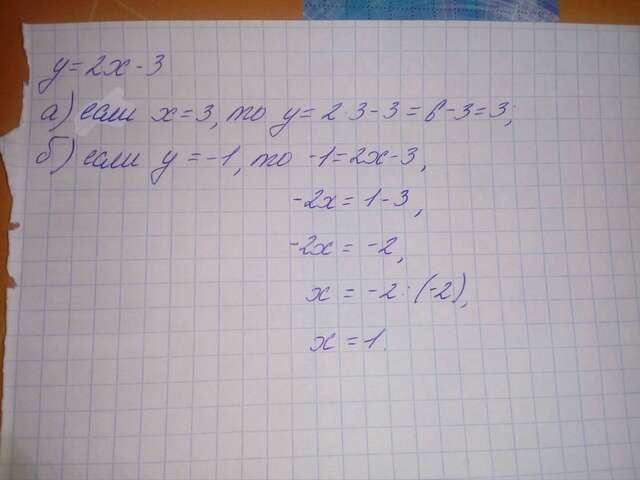 y = 2x - 3
а) если x = 3, то y = 2·3 - 3 = 6 - 3 = 3;
б) если y = -1, то -1 = 2x - 3,
-2x = 1 - 3,
-2x = -2,
x = -2 : (-2),
x = 1.